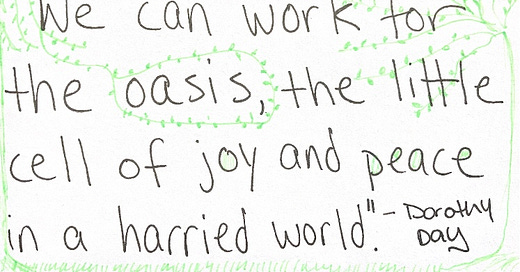 We can work for
the oasis, the little
cell of joy and peace
in a harried world". - Dorothy
Day